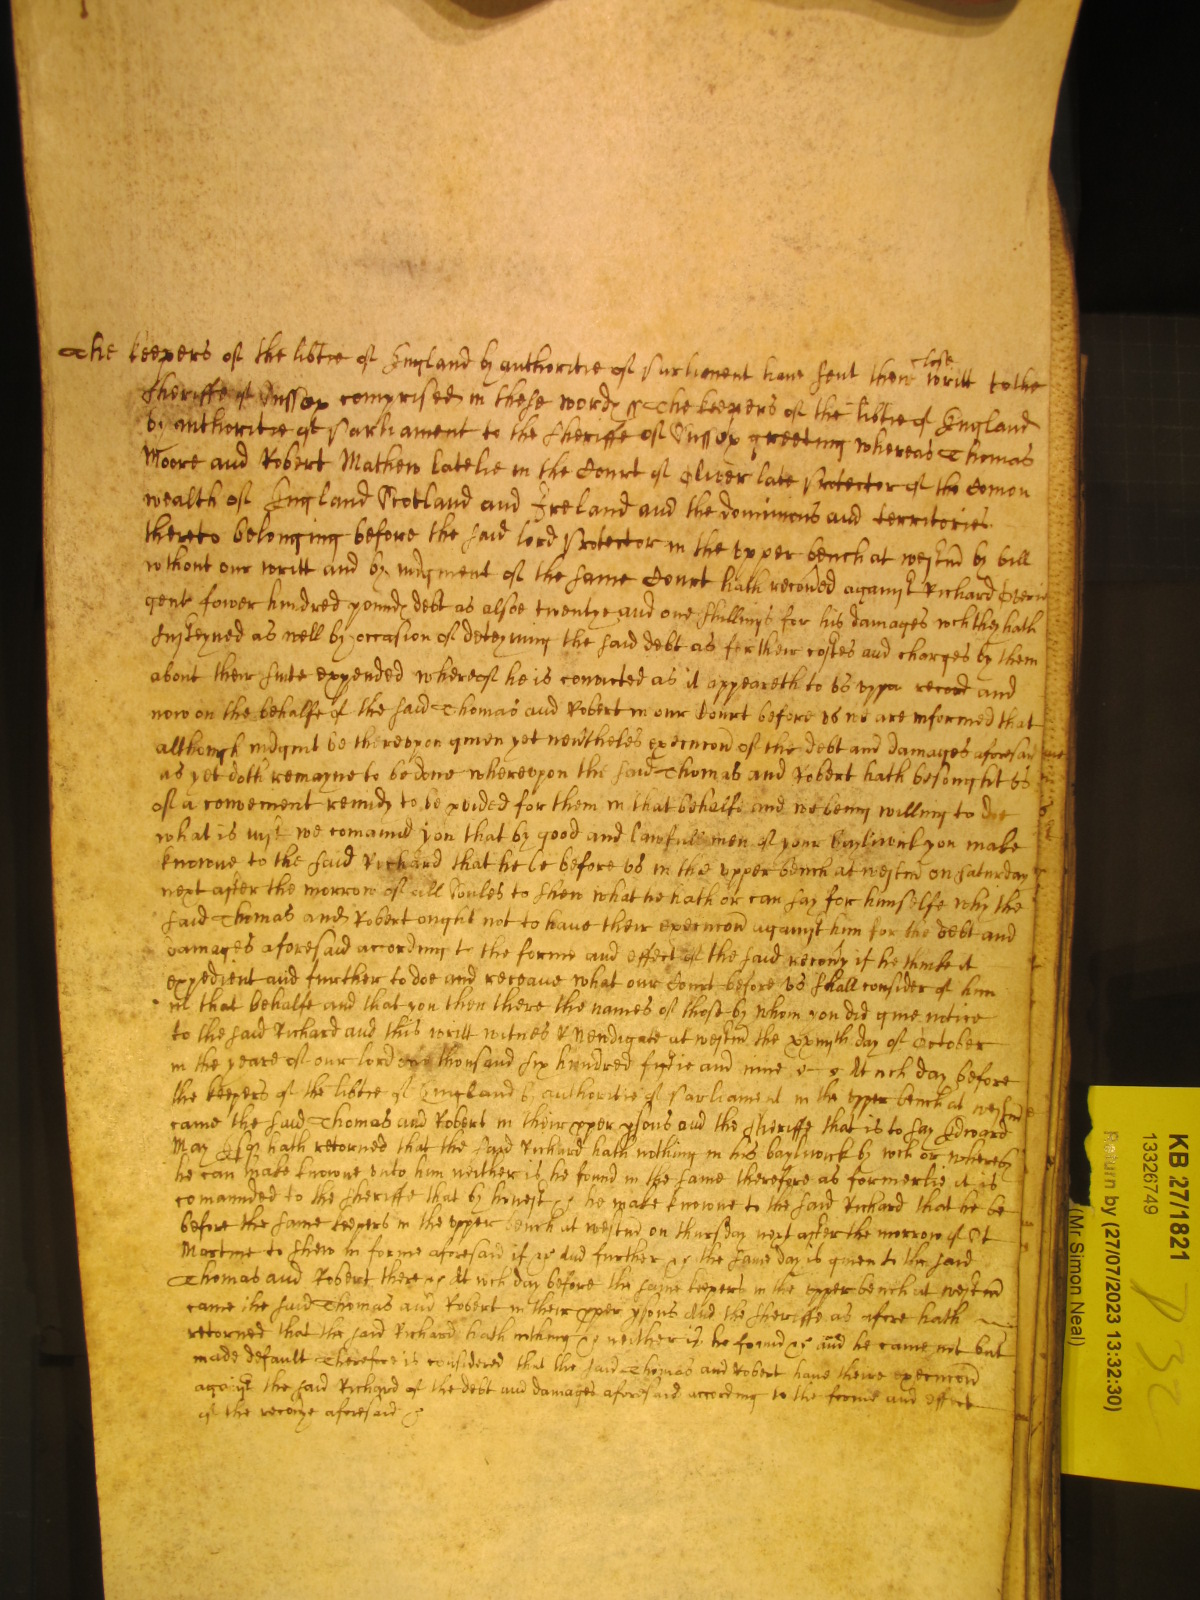 The keepers of the libtie of England by authoritie of Parliament have sent their close writt to the
Sheriffe of Sussex comprised in these word ss The keepers of the libtie of England
by authoritie of Parliament to the Sheriffe of Sussex greeting whereas Thomas
Moore and Robert Mathew latelie in the Court of Oliver late Protector of the Comon
wealth of England Scotland and Ireland and the dominions and territories
thereto belonging before the said lord Protector in the upper bench at westm by bill
wthout our writt and by iudgment of the same Court hath recoued against Richard
gent fower hundred pounds debt as alsoe twentye and one shillings for his damages wch they hath
susteyned as well by occasion of deteyning the said debt as for their costes and charges by them
about their suite expended whereof he is convicted as it appeareth to us uppon record and
now on the behalfe of the said Thomas and Robert in our Court before us we are informed that
although iudgmt be thereupon given yet nevtheles execucon of the debt and damages aforesaid
as yet doth remayne to be done whereupon the said Thomas and Robert hath besought us
of a convenient remidy to be pvided for them in that behalfe and we being willing to doe
what is iust we comaund you that by good and lawfull men of your bayliwick you make
knowne to the said Richard that he be before us in the upper bench at westm on saturday
next after the morrow of all Soules to shew what he hath or can say for himselfe why the
said Thomas and Robert ought not to have their execucon against him for the debt and
damages aforesaid according to the forme and effect of the said recovy if he thinke it
expedient and further to doe and receave what our Court before us shall consider of him
in that behalfe and that you then there the names of those by whom you did give notice
to the said Richard and this writt witnes R Newdigate at westm the day of October
in the yeare of our lord one thousand six hundred fiftie and nine At wch day before
the keepers of the libtie of England by authoritie of Parliament in the upper bench at westm
came the said Thomas and Robert in their pper psons and the Sheriffe that is to say Edward
May Esq hath retorned that the said Richard hath nothing in his baylwick by wch or whereby
he can make knowne unto him neither is he found in the same therefore as formerlie it is
comaunded to the Sheriffe that by honest he make knowne to the said Richard that he be
before the same keepers in the upper bench at westm on thursday next after the morrow of St
Martine to shew in forme aforesaid if And further the same day is given to the said
Thomas and Robert there At wch day before the same keepers in the upper bench at westm
came the said Thomas and Robert in their pper psons And the Sheriffe as afore hath
retorned that the said Richard hath nothing neither is he found and he came not but
made default Therefore is considered that the said Thomas and Robert have theire execucon
against the said Richard of the debt and damages aforesaid according to the forme and effect
of the recovye aforesaid
KB 27/1821
13326749
Return by (27/07/2023 13:32:30)
(Mr Simon Neal)